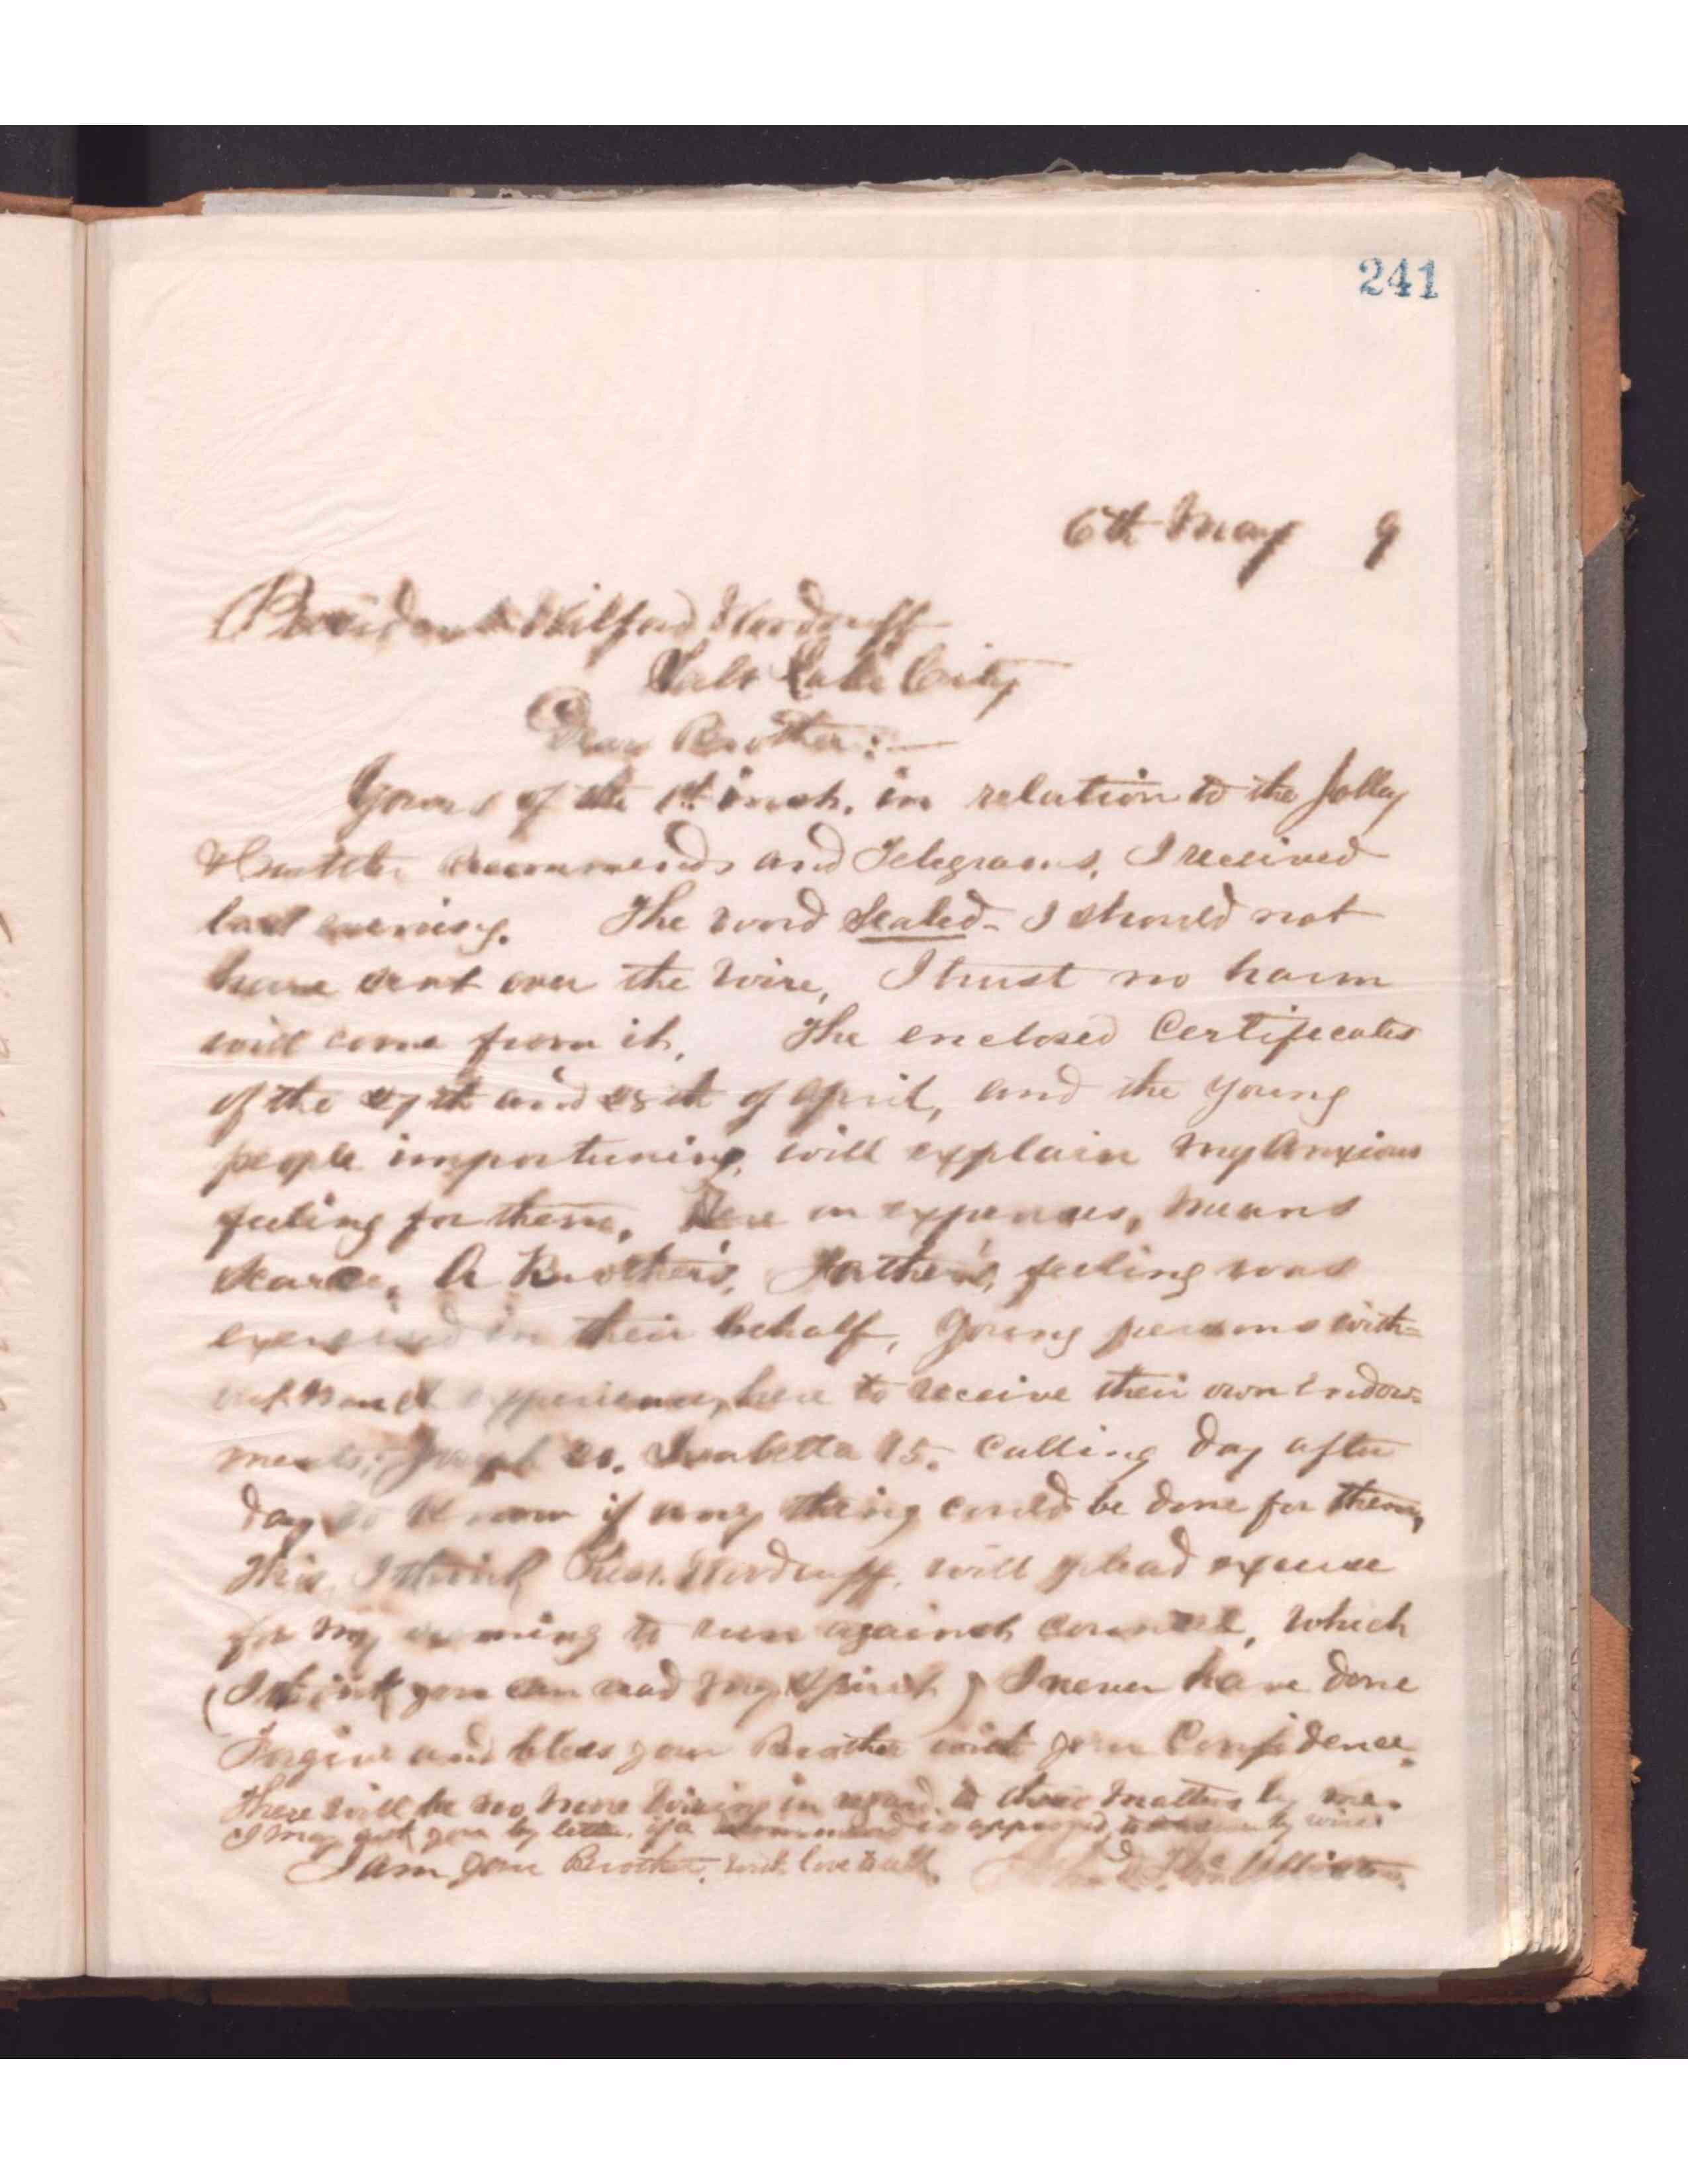 241
6th May 9
President Wilford Woodruff
Salt Lake City
Dear Brother:—
Yours of the 1st inst. in relation to the Jolley
recommends and Telegrams, I received
last evening. The word Sealed - I should not
have sent over the wire, I trust no harm
will come from it. The enclosed Certificates
of the 27th and 28th of April, and the young
people importuning, will explain my anxious
feeling for them, Here on expenses, means
scarce, A Brother's, Father's, feeling was
exercised in their behalf, Young persons with=
out experience, here to receive their own Endow=
ments; Joseph 21. Isabella 15. Calling day after
day to know if any thing could be done for them,
This, I think, Pres. Woodruff, will plead excuse
for my seeming to run against counsel, which
(I think you can read my spirit) I never have done
Forgive and bless your Brother with your Confidence.
There will be no more wiring in regard to these matters by me.
I may ask you by letter, if a recommend is approved, to by wire.
I am your Brother, with love to all,